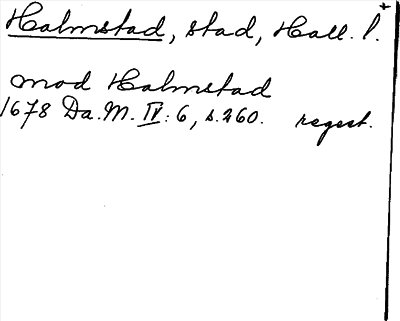 Halmstad, stad, Hall. l. +
mod Halmstad
1678 Da. M. IV: 6, s. 260. regest.